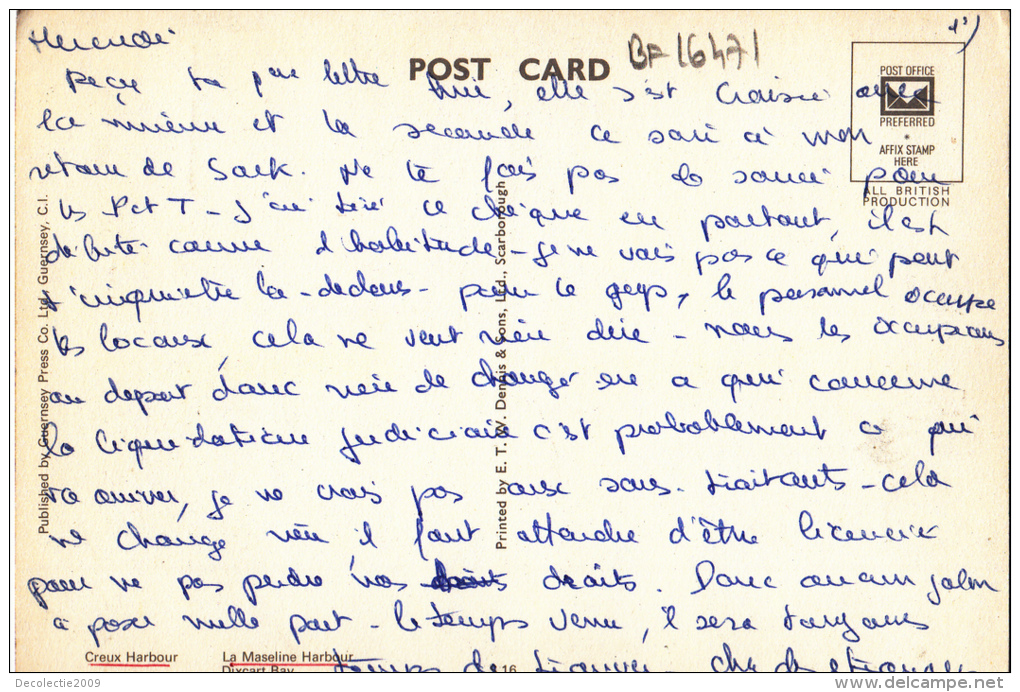 1³)
BF 16471
POST CARD
POST OFFICE
PREFERRED
AFFIX STAMP
HERE
ALL BRITISH
PRODUCTION
Mercredi
Reçu ta lettre hier, elle s'est croisée avec
la mienne et la seconde ce soir à mon
retour de Sark. Ne te fais pas de souci pour
les P et T - j'ai tiré ce chèque en partant, il est
débité comme d'habitude - je ne vois pas ce qui peut
s'inquiéter là-dedans - pour le geyp, le personnel occupe
les locaux, cela ne veut rien dire - nous les occupions
au départ donc rien de changé en ce qui concerne
la liquidation judiciaire c'est probablement ce qui
va arriver, je ne crois pas aux sous-traitants - cela
ne change rien il faut attendre d'être licencier
pour ne pas perdre nos droits. Donc aucun jalon
à poser nulle part - le temps venu, il sera toujours
temps de trouver
Creux Harbour
La Maseline Harbour
Dixcart Bay
16
Published by Guernsey Press Co. Ltd., Guernsey, C.I.
Printed by E. T. W. Dennis & Sons, Ltd., Scarborough
Decolectie2009
delcampe.net